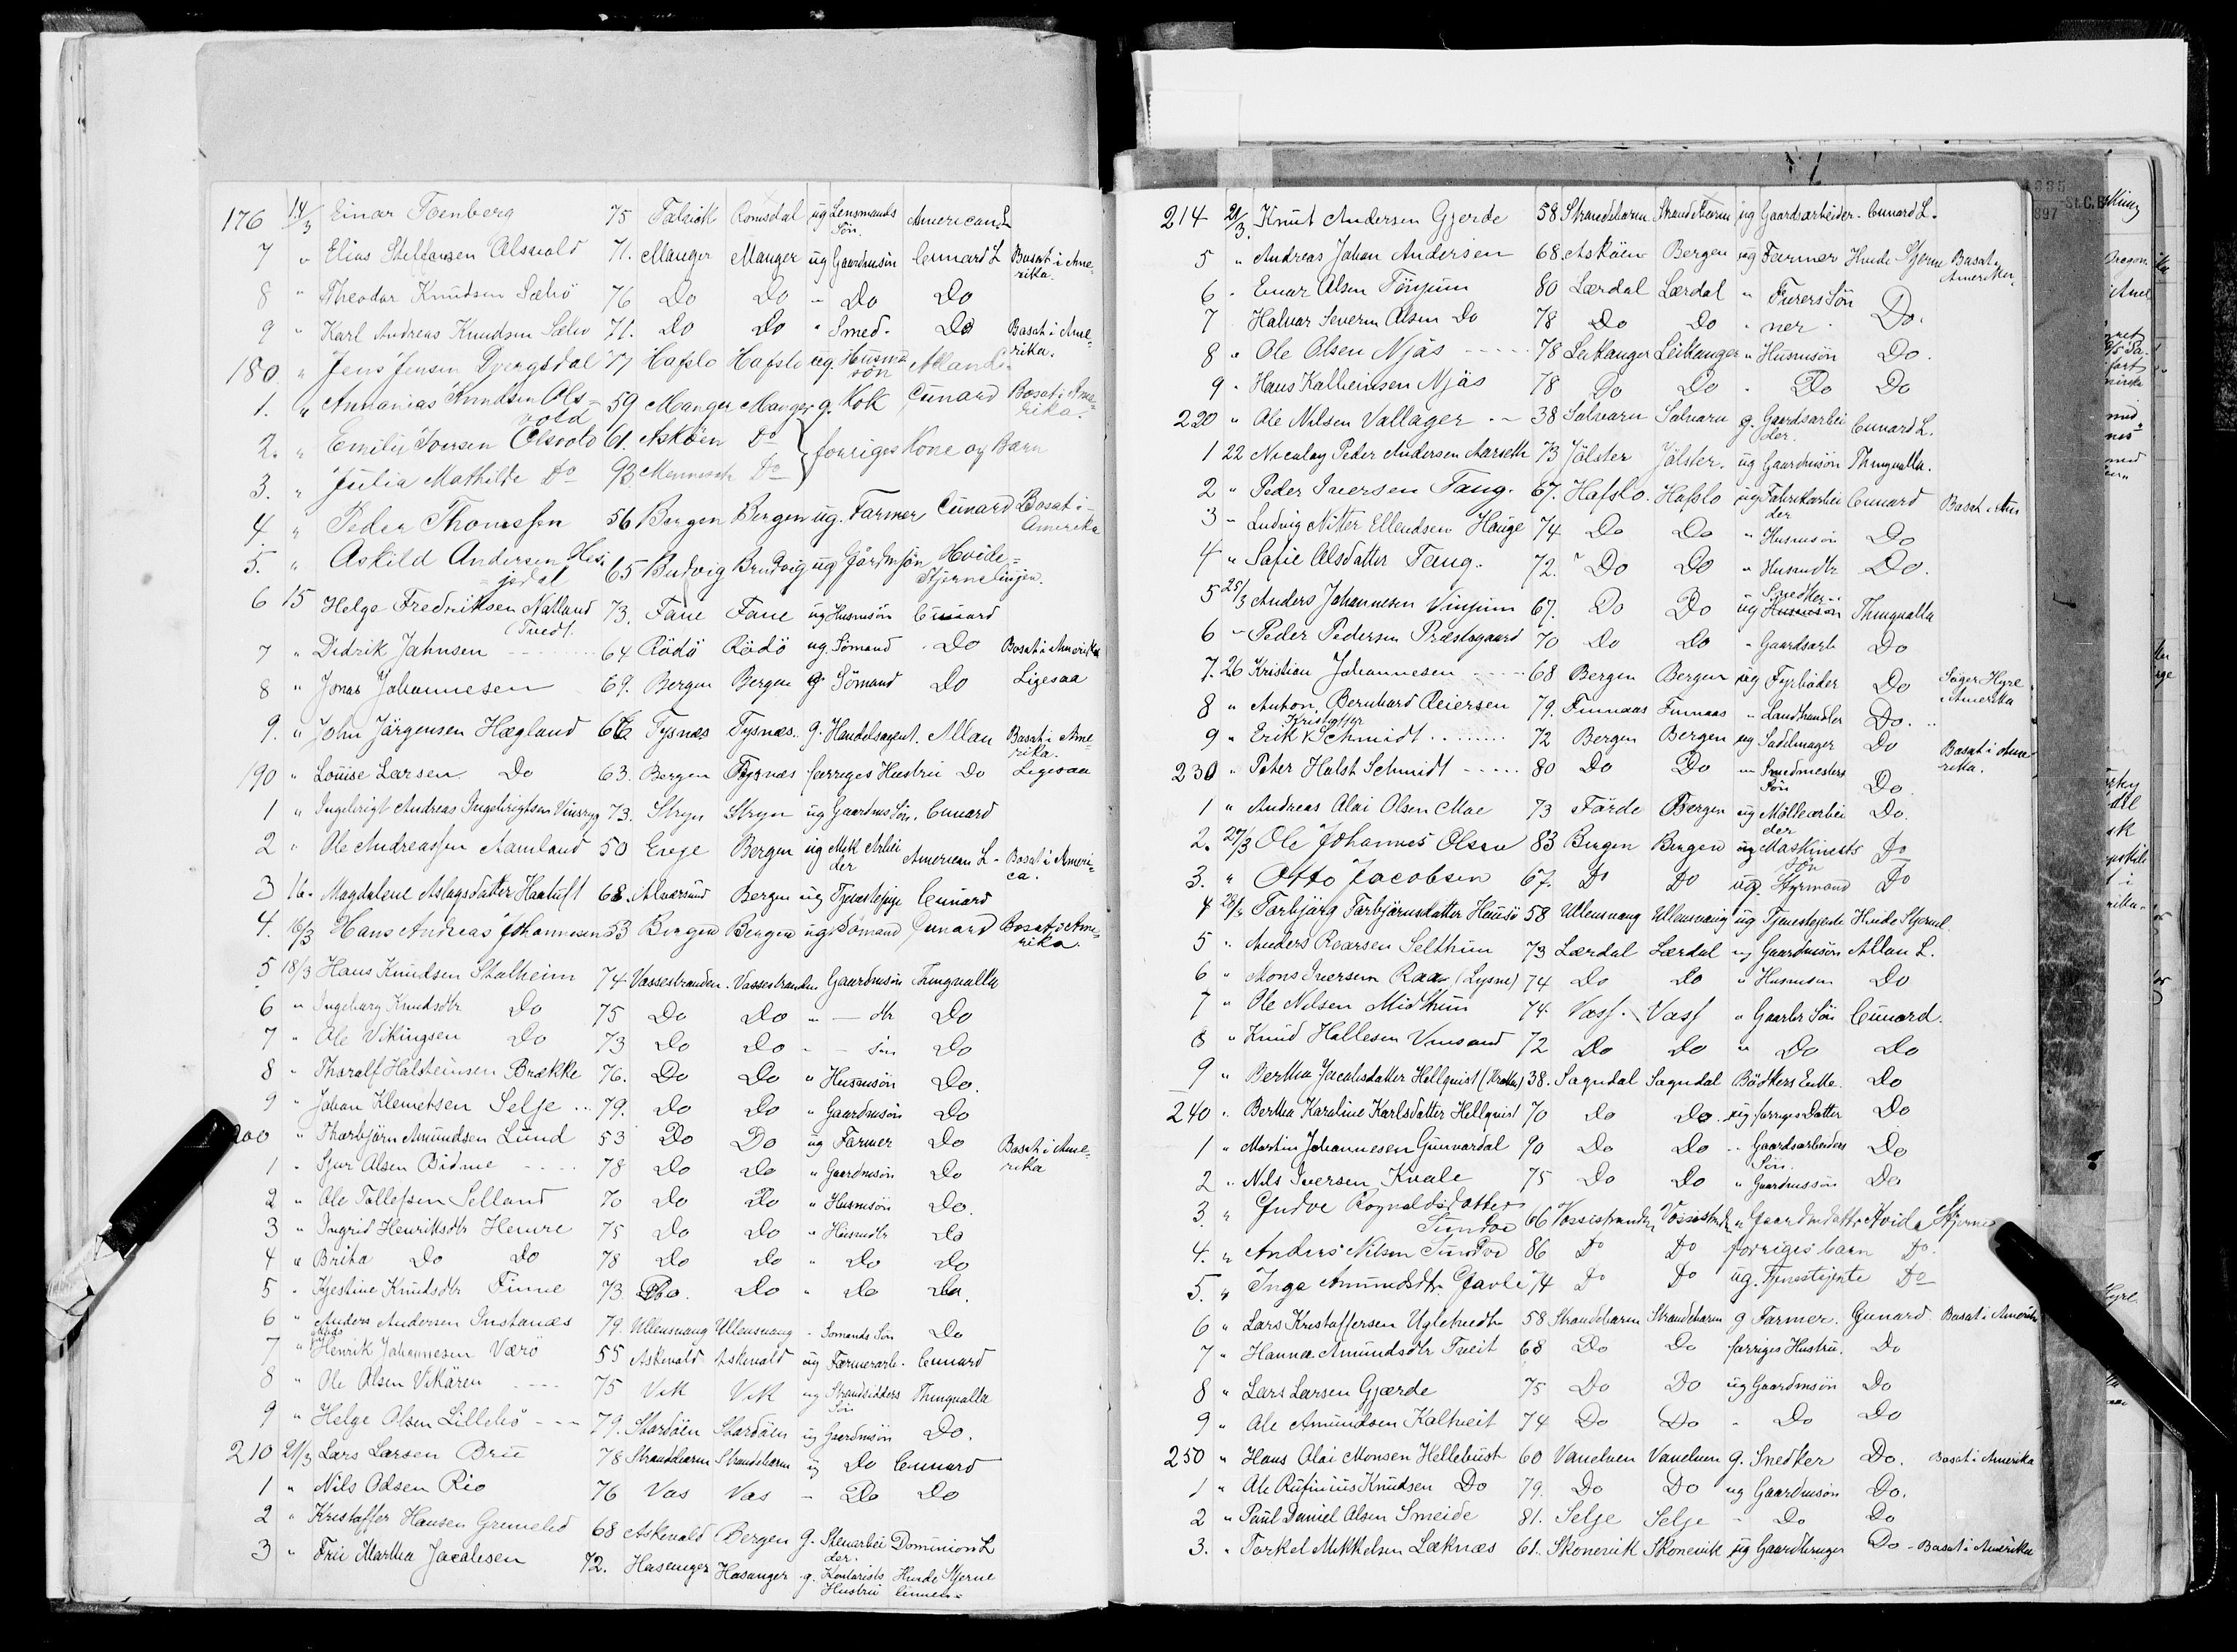 176 14/3 Einar Toenberg 75 Romsdal ug Lensmands Søn American L
7 " Elias Steffansen Alsvold 71. Manger Manger ug Gaardmsön Cunard L Bosat i Amerika.
8 " Theodor Knudsen Sæbö 76 Do Do - Do Do
9 " Karl Andreas Knudsen Sæbö 71. Do Do " Smed. Do Bosat i Amerika.
180 " Jens Jensen Dvergsdal 77 Hafslo Hafslo ug. Husmsön Allan
1. " Annanias Knudsen Olsvold 59 Manger Manger g. Kok Cunard Bosat i Amerika.
2. " Emilie Iversen Olsvold 61. Asköen Do } forriges Kone og Barn
3. " Julia Mathilde Do 93 Do
4. " Peder Thomassen 56 Bergen Bergen ug. Farmer Cunard Bosat i Amerika
5. " Askild Andersen Hisjedal 65 Brudvig ug Gårdmsön Hvide Stjernelinjen.
6 15 Helge Fredriksen Natland (Tvedt 73. Fane Fane ug Husmsön Cunard
7 " Didrik Jahnsen 64 Rödö Rödö ug. Sömand Do Bosat i Amerika
8 " Jonas Johannesen 69. Bergen Bergen g Sömand Do Ligesaa
9. " John Jörgensen Hægland 66 Tysnæs Tysnæs. g. Handelsagent. Allan Bosat i Amerika.
190 " Louise Larsen Do 63. Bergen Tysnæs forriges Hustru Do Ligesaa
1 " Ingebrigt Andreas Ingebrigtsen Vinsryg 73. Stryn Stryn ug Gaardms Sön. Cunard
2 " Ole Andreassen Aamland 50 Bergen ug Mek Arbeider American L - Bosat i America.
3 16. Magdalene Aslagsdatter Haatuft 68. Alversund Bergen ug Tjenestepige Cunard
4. 16/3 Hans Andreas Johannesen 53 Bergen Bergen ug Sömand Cunard Bosat i Amerika.
5 18/3 Hans Knudsen Stalheim 74 Vossestranden. Vossestranden Gaardmsön Thingvalla
6 " Ingeborg Knudsdtr Do 75 Do Do " - dtr Do
7 " Ole Vikingsen Do 73 Do Do - - sön Do
8 " Tharalf Halsteinsen Brække 76. Do Do " Husmsön Do.
9 " Johan Klemetsen Selje .. 79. Do Do " Gaardmsön Do
200 " Thorbjörn Amundsen Lund 53 Do Do ug Farmer Do Bosat i Amerika
1 " Sjur Olsen Bidne 78 Do Do " Gaardmsön Do
2 " Ole Tollefsen Selland 70 Do Do " Husmsön Do.
3 " Ingrid Henriksdtr Hemre 75 Do Do " Husmdtr Do
4 " Brita Do Do 78 Do Do " Do Do
5 " Kjestine Knudsdtr Finne 73 Do. Do " Do Do.
6 " Anders Andersen Instanæs 79. Ullensvang Ullensvang - Somands Sön Do
7 " Henrik Johannesen Værö 55 Askevold Askevold ug Farmerarb. Cunard
8 " Ole Olsen Vikören 75 Vik Vik ug Strandsidders Sön Thingvalla
9 " Helge Olsen Lillebö 79. Stordöen Stordöen ug Gaardmsön Do.
210 21/3 Lars Larsen Bru 78 Strandebarm Strandebarm ug Do Cunard
1 " Nils Odsen Rio 76 Vos Vos - Do Do
2 " Kristoffer Hansen Gremelid 68 Askevold Bergen g. Stenarbeider. Dominion L
3 " Fru Martha Jacobsen 72. g. Kontorists Hustru Hvide Stjerne Linien
214 21/3. Knut Andersen Gjerde 58 Strandebarm Strandebarm ug Gaardsarbeider. Cunard L.
5 " Andreas Johan Andersen 68. Asköen Bergen ug Farmer Hvide Stjerne Bosat i Amerika.
6 - Einar Olsen Tönjum 80 Lærdal Lærdal " Furers Sön Do
7 Halvar Severin Olsen Do 78 Do Do " ner Do.
8 " Ole Olsen Njös 78 Leikanger Leikanger " Husmsön Do.
9 - Hans Kalheimsen Njös 78 Do Do - Do Do
220 " Ole Nilsen Vallager 38 Solvorn Solvorn g. Gaardsarbeider. Cunard L.
1 22 Nicolay Peder Andersen Aarseth 73 Jölster Jölster. ug Gaardmsön Thingvalla.
2 " Peder Iversen Fang. 67. Hafslo. Hafslo ug Fabrikarbeider Cunard Bosat i Am
3 - Ludvig Nitter Ellendsen Hauge 74 Do Do " Husmsön Do
4 " Sofie Olsdatter Fang. 72. " Do Do " Husmdtr Do.
5 25/3 Anders Johannesen Vinjum 67. Do Do ug Snedker Thingvalla
6 - Peder Pedersen Præstegaard 70 Do Do " Gaardsarb Do
7. 26 Kristian Johannesen 68 Bergen Bergen ug Fyrböder Do Söger Hyre i Amerika
8 " Anton Bernhard Reiersen 79. Finnaas Finnaas " Landhandler Do.
9 " Erik Kristoffer Schmidt 72 Bergen Bergen ug Sadelmager Do Bosat i Amerika.
230 " Peter Holst Schmidt 80 Do Do " Smedmesters Sön Do.
1 " Andreas Olai Olsen Moe 73 Förde Bergen ug Möllearbeider Do.
2. 27/3 Ole Johannes Olsen 83 Bergen Bergen ug Maskinists sön Do
3. " Otto Jacobsen 67. Do Do ug. Styrmand Do
4 28/3 Torbjörg Torbjörnsdatter Hausö 58 Ullensvang Ullensvang ug Tjenestejente Hvide Stjernel.
5 " Anders Roarsen Selthun 73 Lærdal Lærdal ug Gaardmsön Allan L.
6 " Mons Iversen Raa (Lysne) 74 Do Do " Husmsön Do
7 " Ole Nilsen Midthun 74. Voss. Voss " Gaardbr Sön Cunard.
8 " Knud Hallesen Vinsand 72 Do Do " Do Do
9 " Bertha Jacobsdatter Hellquist 38. Sogndal Sogndal Bödkers Enke. Do
240 " Bertha Karoline Karlsdatter Hellquist 70 Do Do. ug forriges Datter Do
1 " Martin Johannesen Gunvordal 90 Do Do " Gaardsarbeiders Sön. Do
2 " Nils Iversen Kvale 75 Do Do " Gaardmssön Do
3. " Gudve Rognaldsdatter Sundve 66 Vossestranden Vossestrdn " Gaardmdatter Hvide Stjerne
4. " Anders Nilsen Sundve 86 Do Do forriges barn Do.
5. " Inga Amundsdtr. Gavle 74 Do Do ug. Tjenestejente Do
6 " Lars Kristoffersen Ugletvedt 58 Strandebarm Strandebarm g Farmer. Cunard Bosat i Amerika
7 " Hanna Amundsdtr Tveit 68 Do Do forriges Hustru. Do
8 " Lars Larsen Gjærde 75 Do Do ug Gaardmsön Do
9 " Ole Amundsen Kaltveit 74 Do Do - Do Do
250 " Hans Olai Monsen Hellebust 60 Vanelven Vanelven g. Snedker Do. Bosat i Amerika
1 " Ole Rufinius Knudsen Do 79. Do Do ug Gaardmsön Do.
2 " Paul Daniel Olsen Smeide 81. Selje Selje - Do Do
3. " Torkel Mikkelsen Læknæs 61. Skonevik Skonevik ug Gaardbruger Do - Bosat i Amerika